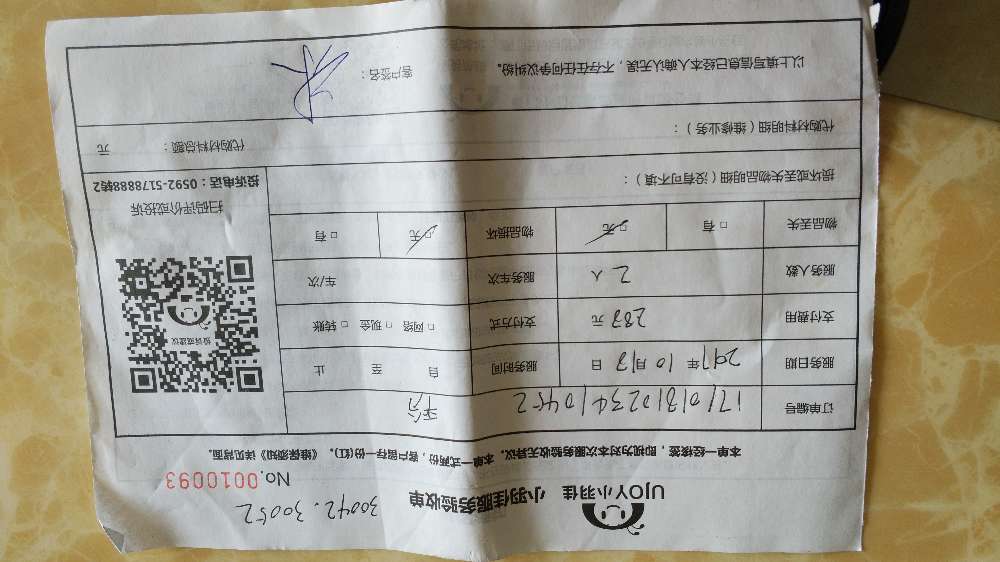 30042.30052
UJOY小羽佳 小羽佳服务验收单
No.0010093
本单一经核签，即视为对本次服务验收无异议。本单一式两份，客户留存一份(红)。《维保须知》详见背面。
订单编号 1710181023410452
服务日期 2017年10月 日 服务时间 自 至 止
支付费用 287元 支付方式 □ 网络 □ 现金 □ 转账
服务人数 2人 服务车次 车/次
物品丢失 □ 有 □ 无 物品损坏 □ 无 □ 有
损坏或丢失物品明细（没有可不填）：
代购材料明细（维修业务）：
代购材料总额： 元
以上填写信息已经本人确认无误，不存在任何争议纠纷。
客户签名：
投诉或建议
扫码评价或投诉
投诉电话：0592-5178888转2